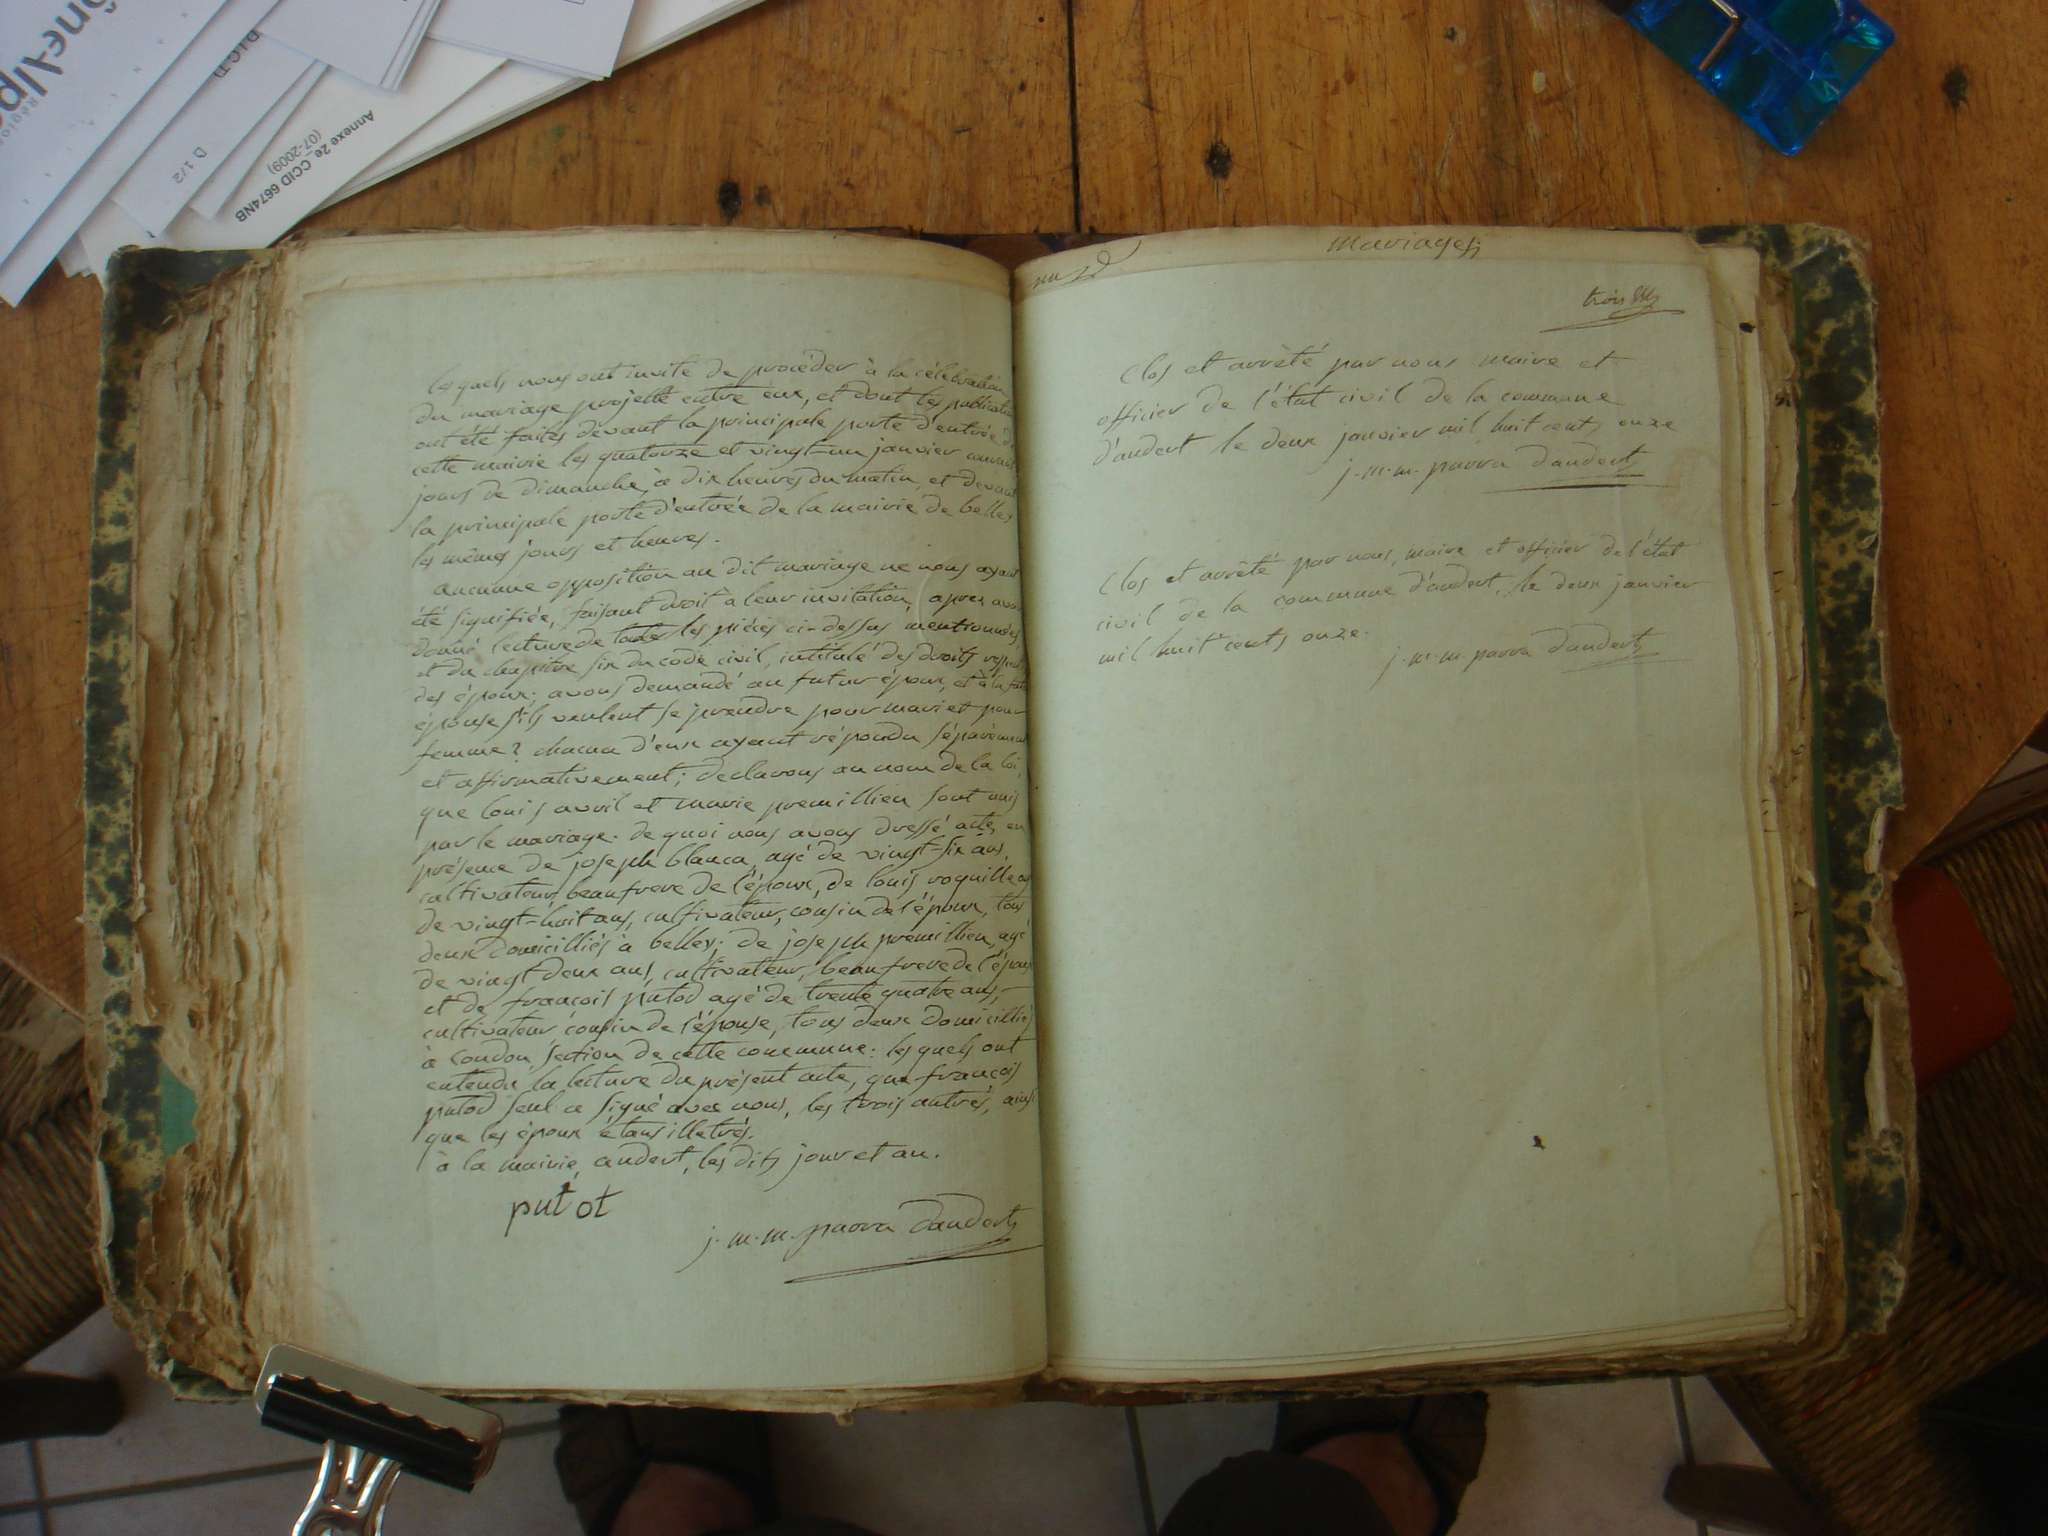 Rhône-Alpes
Région
D I C T
D 1/2
Annexe 2e_CCID 6674NB
(07-2009)
lesquels nous ont invité de procéder à la célébration
du mariage projetté entre eux, et dont les publications
ont été faites devant la principale porte d'entrée de
cette mairie les quatorze et vingt-un janvier courant
jours de dimanche, à dix heures du matin, et devant
la principale porte d'entrée de la mairie de belley
les mêmes jours et heures.
aucunne opposition au dit mariage ne nous ayant
été signifiée, faisant droit a leur invitation, apres avoir
donné lecture de toutes les piéces ci-dessus mentionnées
et du chapitre six du code civil, intitulé des droits respectifs
des époux; avons demandé au futur époux, et à la future
épouse s'ils veulent se prendre pour mari et pour
femme? chacun d'eux ayant répondu séparèment
et affirmativement; declarons au nom de la loi,
que louis avril et marie premillieu sont unis
par le mariage. de quoi nous avons dressé acte, en
présence de joseph blanca, agé de vingt-six ans,
cultivateur, beaufrere de l'époux, de louis roquille agé
de vingt-huit ans, cultivateur, cousin de l'époux, tous
deux domicilliés à belley; de joseph premillieu, agé
de vingt deux ans, cultivateur, beaufrere de l'épouse
et de françois putod agé de trente quatre ans,
cultivateur, cousin de l'épouse, tous deux domicilliés
à coudon, section de cette commune: lesquels ont
entendu la lecture du présent acte, que françois
putod seul a signé avec nous, les trois autres, ainsi
que les époux étans illetrés.
à la mairie, andert, les dits jour et an.
putot
j. m. m. parra dandert
mariages
trois
Clos et arrêté par nous maire et
officier de l'état civil de la commune
d'andert le deux janvier mil huit cents onze
j. m. m. parra dandert
Clos et arrêté par nous, maire et officier de l'état
civil de la commune d'andert, le deux janvier
mil huit cents onze.
j. m. m. parra dandert